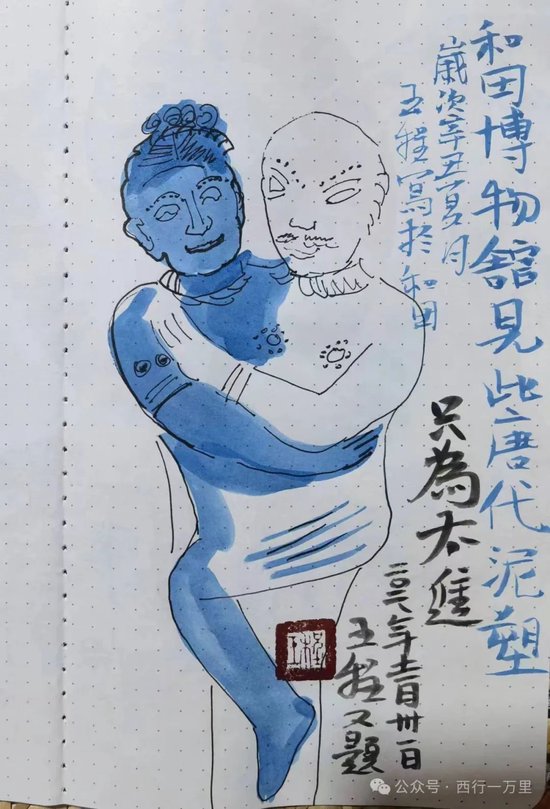 和田博物館見此唐代泥塑
歲次辛丑夏月
王程寫於和田
只為太進
年十二月卅一日
王程又題
王程
公众号·西行一万里